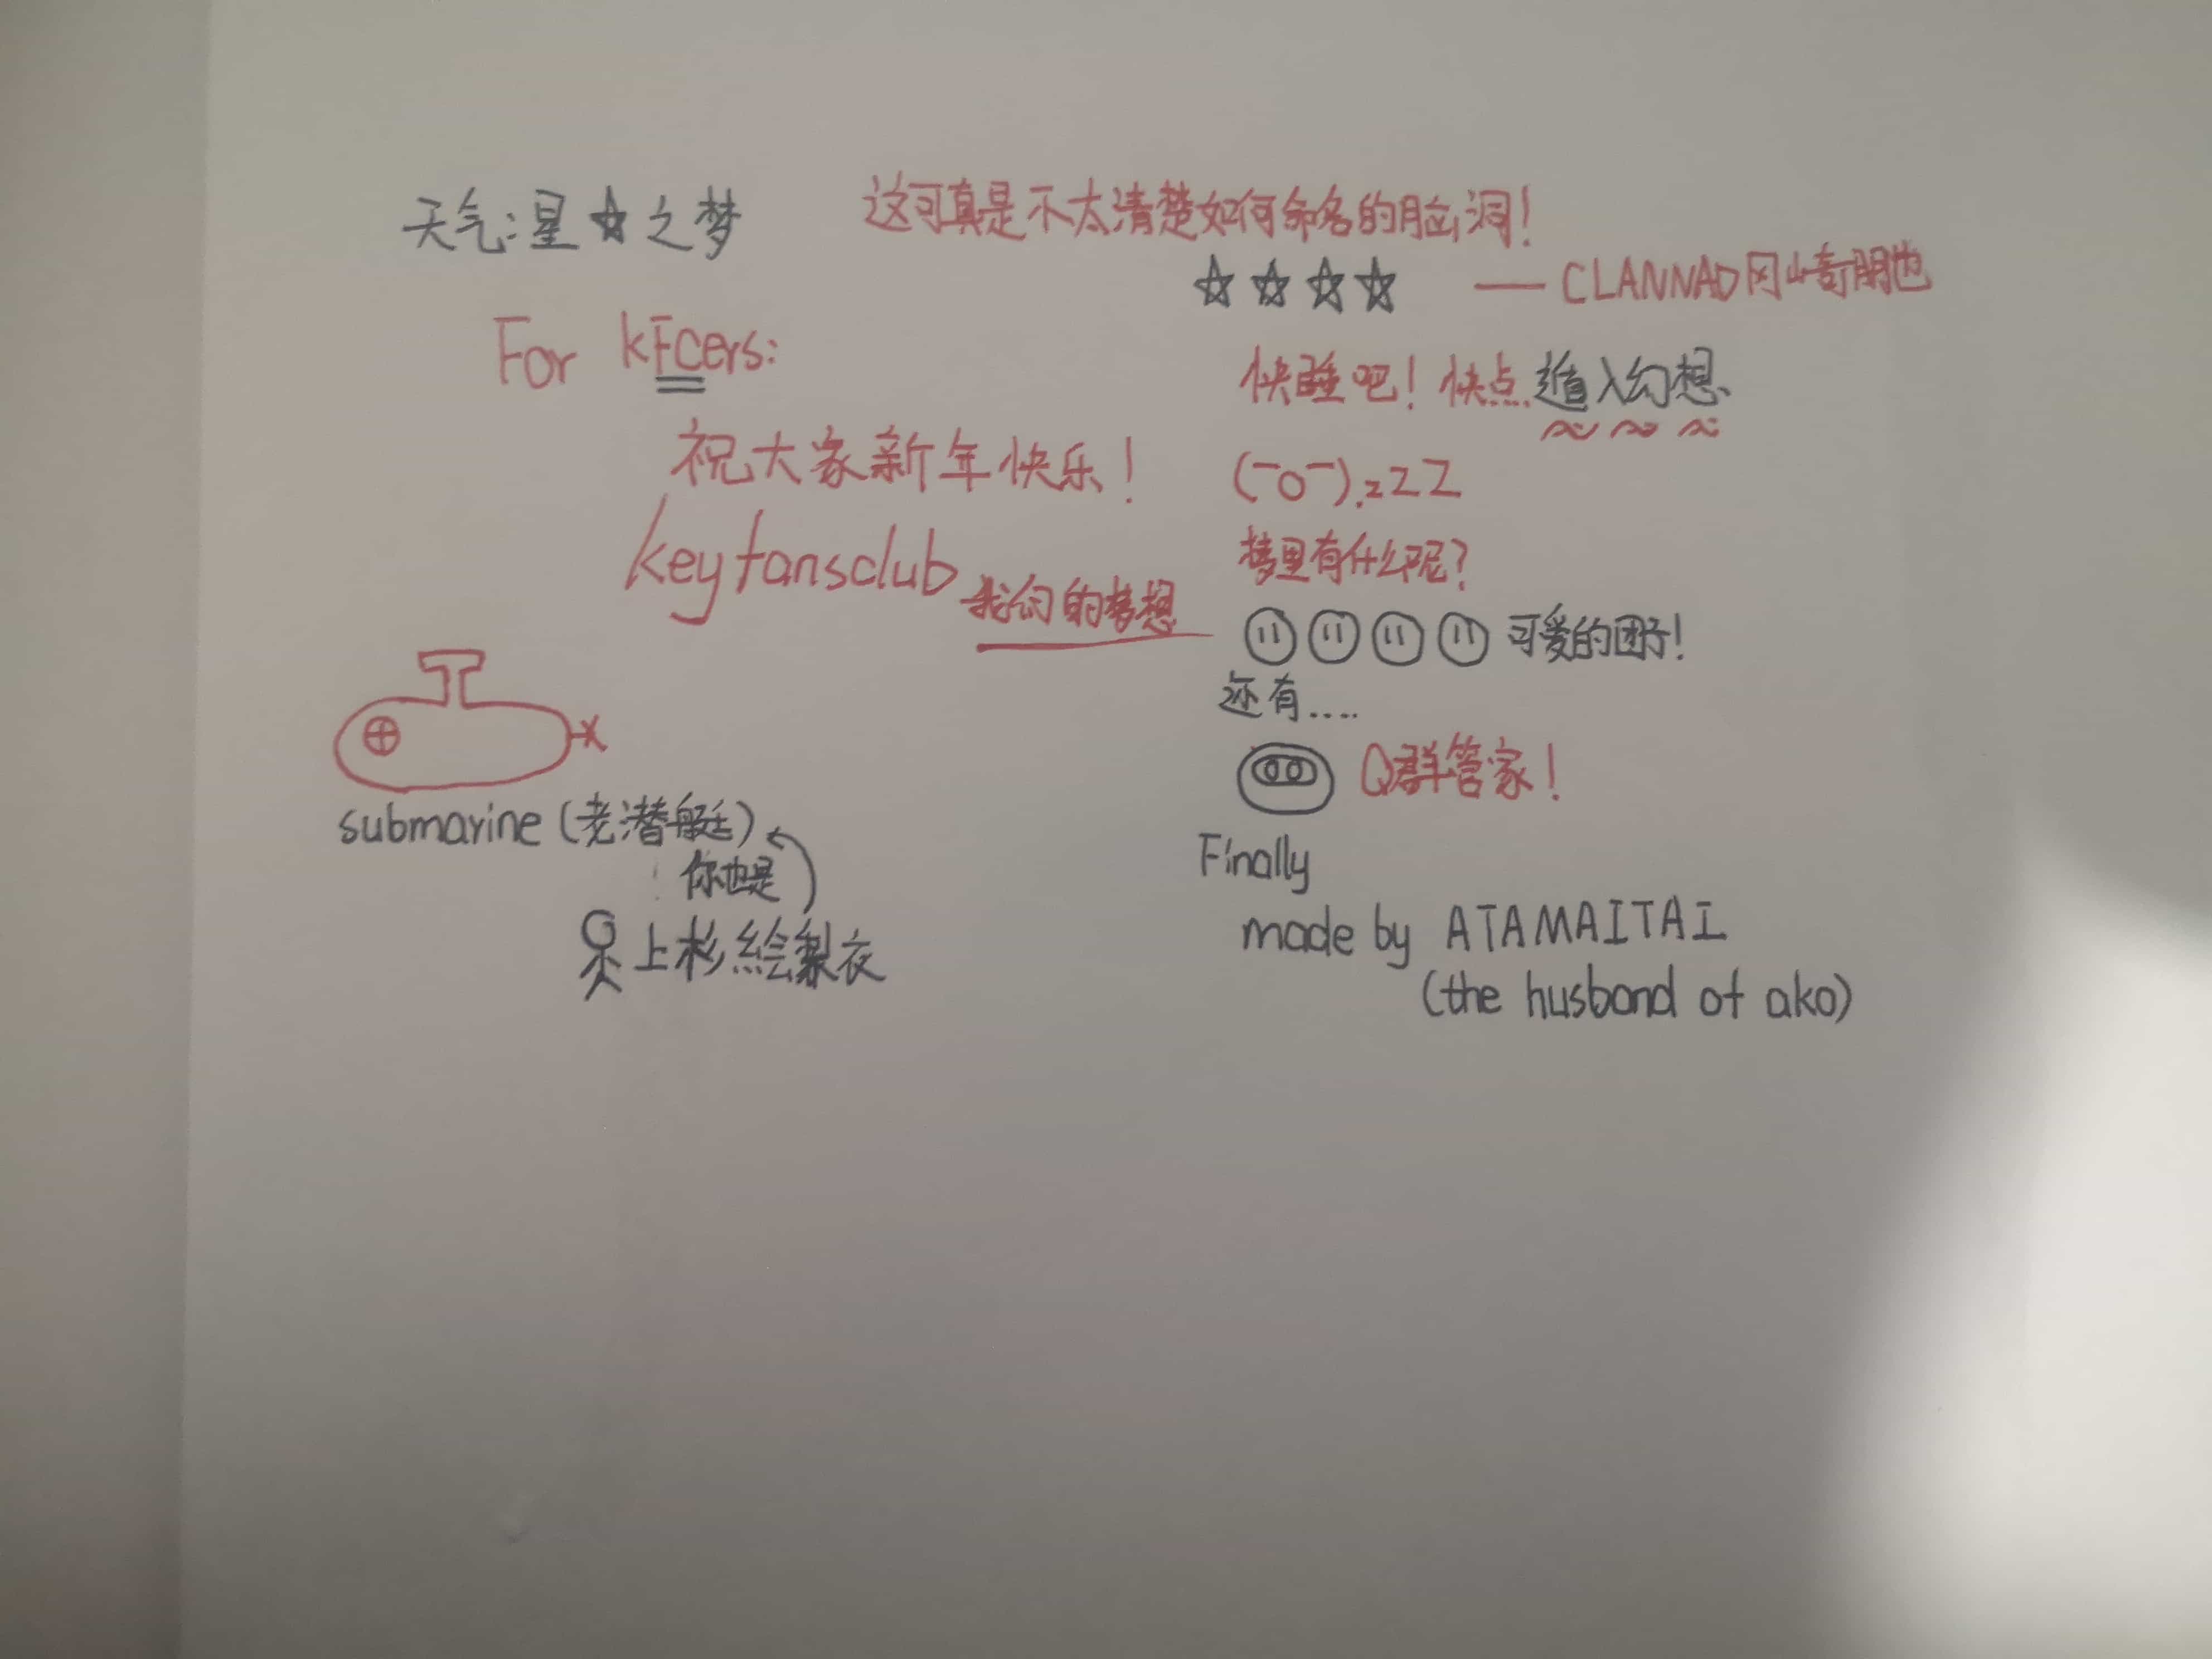 天气:星☆之梦
这可真是不太清楚如何命名的脑洞!
☆☆☆☆ ——CLANNAD冈崎朋也
For kFCers:
祝大家新年快乐!
keyfansclub 我们的梦想
快睡吧!快点遁入幻想、
(-o-).zZZ
梦里有什么呢?
可爱的团子!
还有....
Q群管家!
submarine (老潜艇)
你也是
上杉絵梨衣
Finally
made by ATAMAITAI
(the husband of ako)